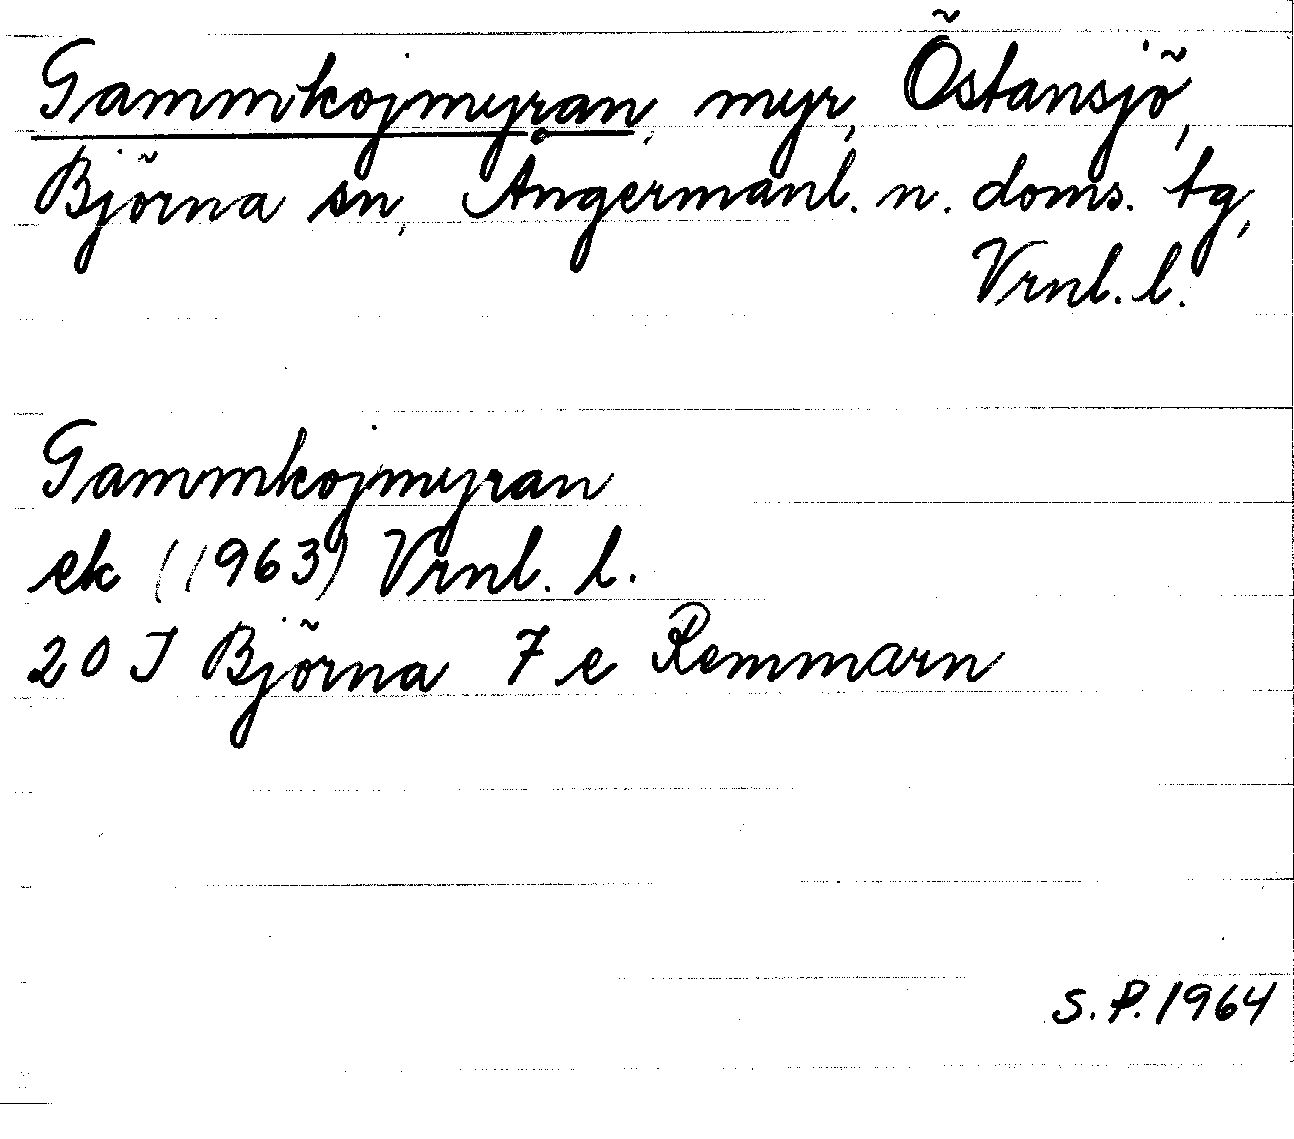 Gammkojmyran, myr, Östansjö,
Björna sn, Ångermanl. n. doms. tg,
Vrnl. l.
Gammkojmyran
ek (1963) Vrnl. l.
20 J Björna 7 e Remmarn
S. P. 1964